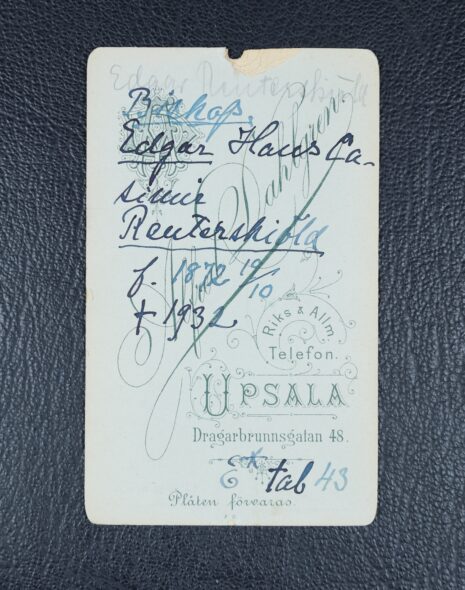 Edgar Reuterskiöld
Biskop.
Edgar Hans Ca-
simir
Reuterskiöld
f. 1872 19/10
† 1932
Dahlgren.
Riks & Allm.
Telefon.
UPSALA
Dragarbrunnsgatan 48.
tab 43
Plåten förvaras.